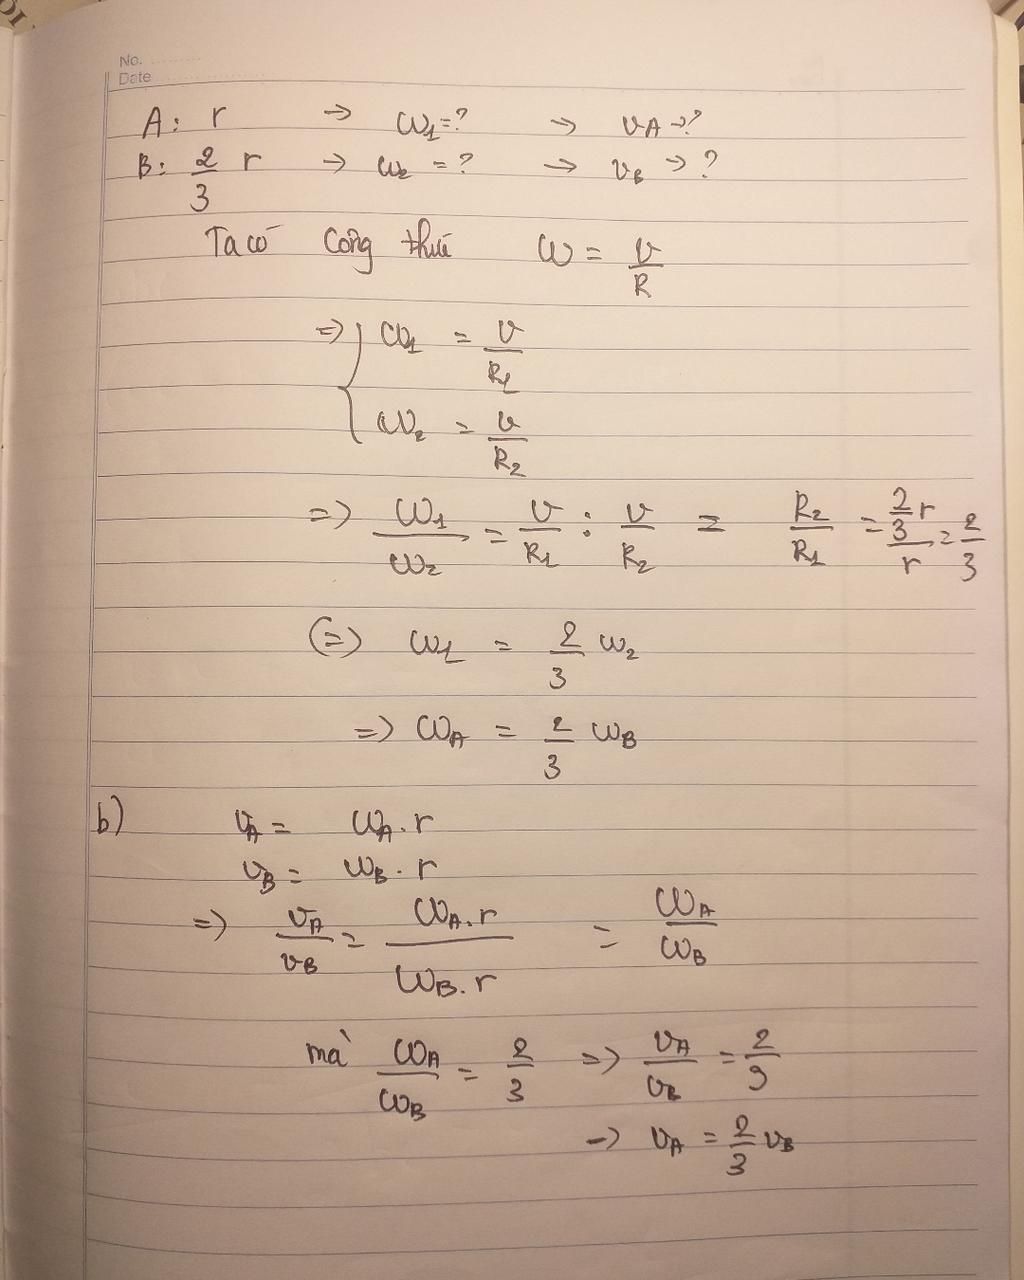 No.
Date
A: r → ω₁ = ? → vA → ?
B: 2/3 r → ω₂ = ? → vB → ?
Ta có công thức ω = v/R
=> { ω₁ = v/R₁
ω₂ = v/R₂
=> ω₁/ω₂ = v/R₁ : v/R₂ = R₂/R₁ = (2/3 r)/r = 2/3
(=) ω₁ = 2/3 ω₂
=> ωA = 2/3 ωB
b) vA = ωA . r
vB = ωB . r
=> vA/vB = ωA.r/ωB.r = ωA/ωB
mà ωA/ωB = 2/3 => vA/vB = 2/3
-> vA = 2/3 vB